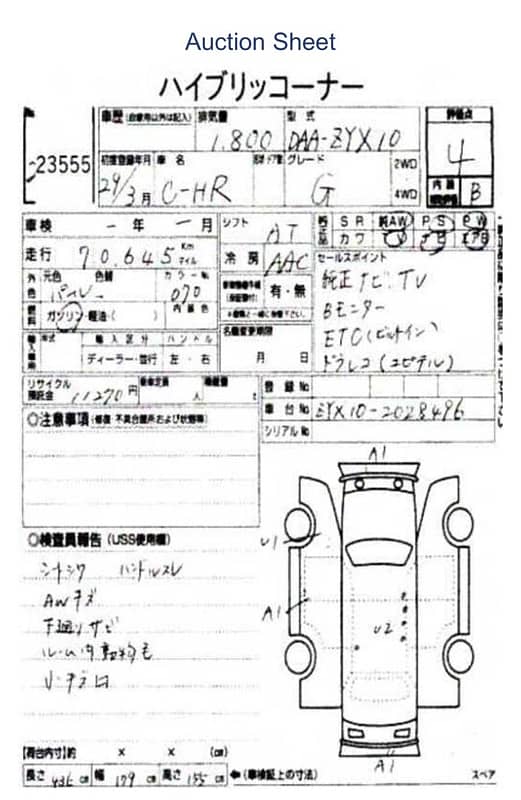 Auction Sheet
ハイブリッコーナー
車歴 (自家用以外は記入) 排気量 型式 評価点
1.800 DAA-ZYX10 4
23555
初度登録年月 車名 グレード 2WD 内装
29/3月 C-HR G 4WD B
車検 一年 一月 シフト AT 純正品 SR 純AW PS PW
カワ ナビ エアB
走行 70.645 Km マイル 冷房 AAC セールスポイント
外色 元色 色替 カラーNo 純正ナビTV
パール 070 有・無 Bモニター
燃料 ガソリン・軽油・( ) 内装色 ETC(ビルトイン)
輸入車 年式 輸入区分 ハンドル 名義変更期限 ドラレコ(ユピテル)
ディーラー・並行 左・右 月 日
リサイクル預託金 11270円 乗車定員 人 積載量 t 登録No
車台No ZYX10-2028496
シリアルNo
◎注意事項 (修復・不具合箇所および状態等)
A1
U1
◎検査員報告 (USS使用欄)
シートシワ ハンドルスレ
AWキズ
A1
下廻りサビ
U2
ルーム内動物毛
【荷台内寸】約 × × (cm)
A1
長さ 436 cm 幅 179 cm 高さ 155 cm ←(車検証上の寸法) スペア